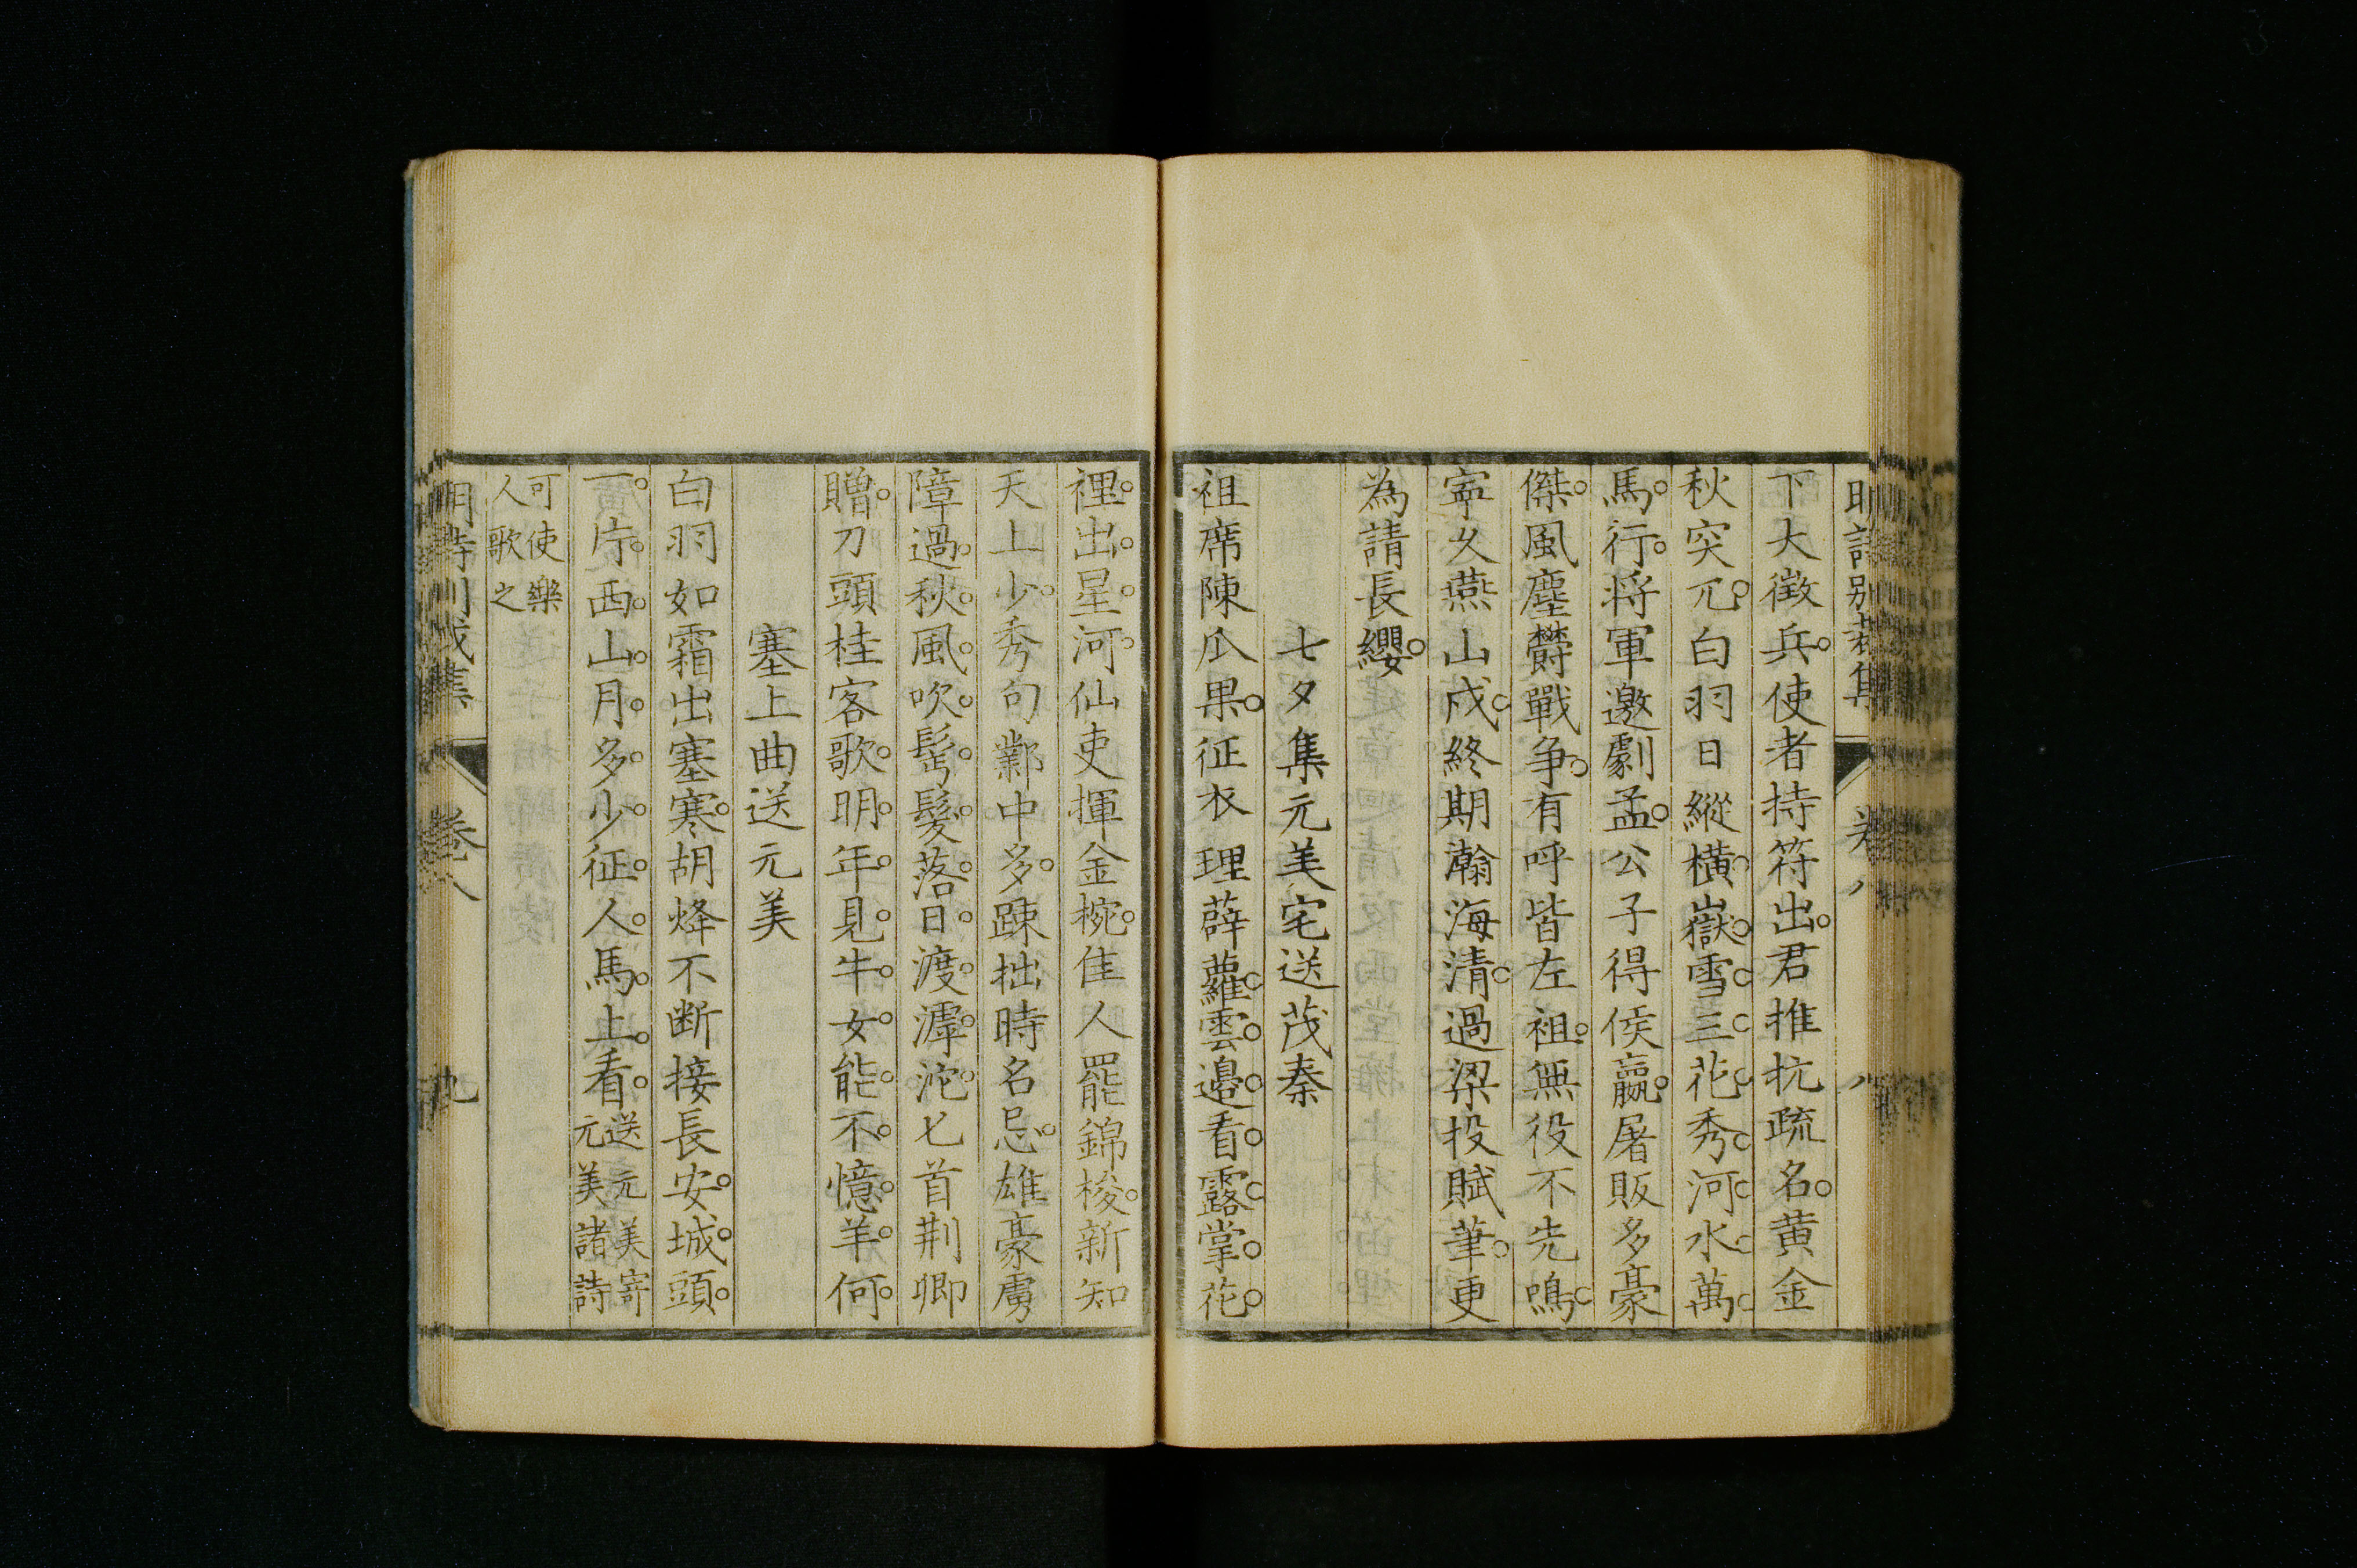 下大徵兵使者持符出君推抗疏名黄金
秋突兀白羽日縱橫嶽雪三花秀河水萬
馬行將軍邀劇孟公子得侯嬴屠販多豪
傑風塵欝戰争有呼皆左袒無役不先鳴
寧乆燕山戍終期瀚海清過梁投賦筆更
為請長纓
七夕集元美宅送茂秦
祖席陳瓜果征衣理薜蘿雲邉看露掌花
裡出星河仙吏揮金椀佳人罷錦梭新知
天上少秀句鄴中多踈拙時名忌雄豪虜
障過秋風吹髩髪落日渡滹沱匕首荆卿
贈刀頭桂客歌明年見牛女能不憶羊何
塞上曲送元美
白羽如霜出塞寒胡烽不断接長安城頭
一片西山月多少征人馬上看送元美寄
元美諸詩
可使樂
人歌之
明詩别裁集 卷八 九